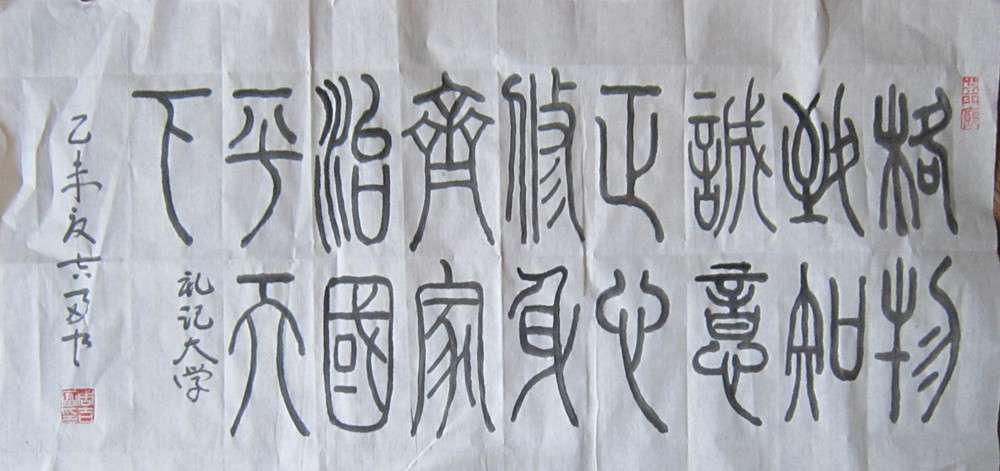 格物
致知
誠意
正心
修身
齊家
治國
平天
下
礼记大学
乙未夏书